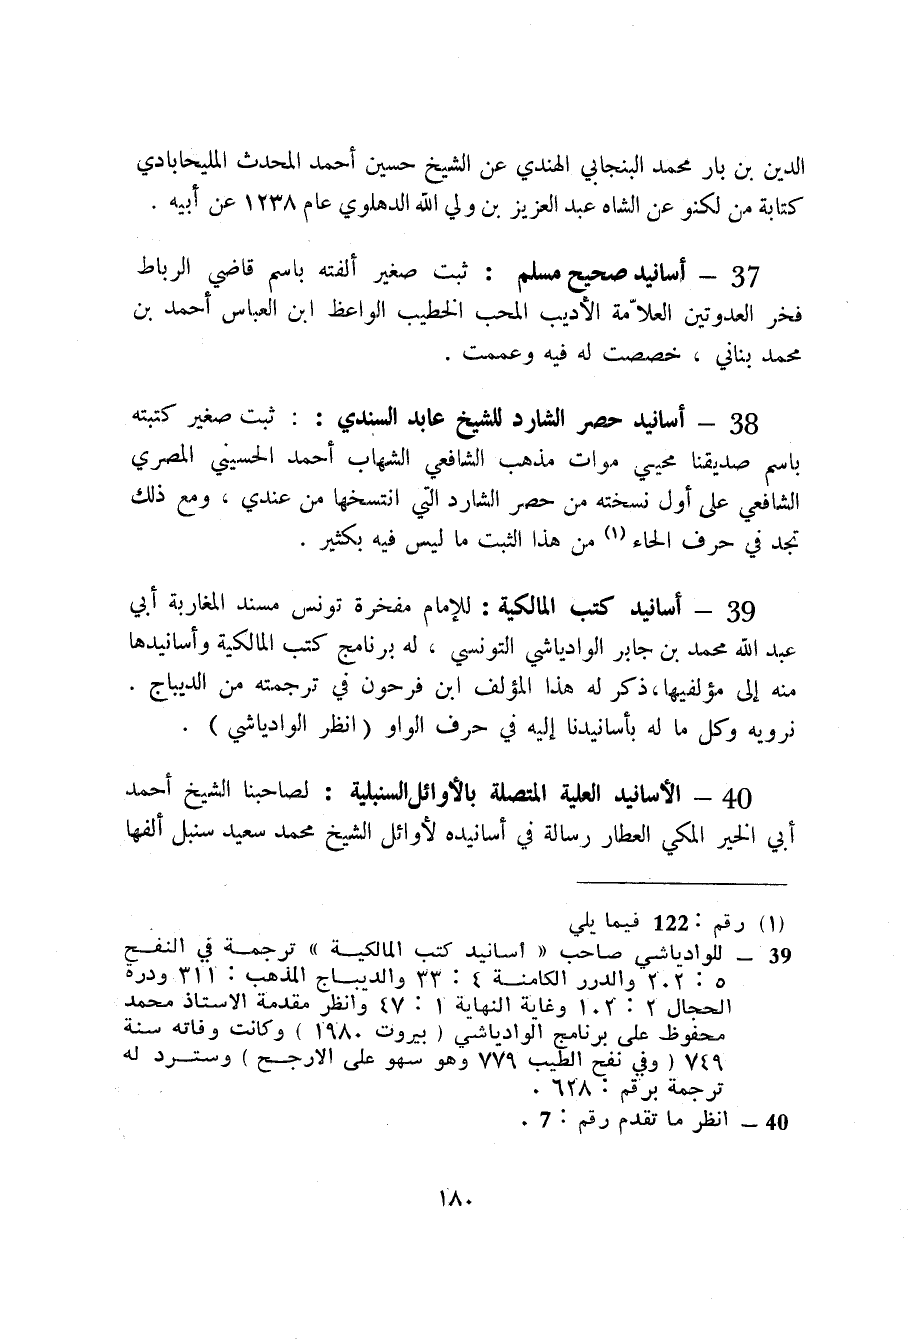 الدين بن بار محمد البنجابي الهندي عن الشيخ حسين أحمد المحدث المليحابادي
كتابة من لكنو عن الشاه عبد العزيز بن ولي الله الدهلوي عام ١٢٣٨ عن أبيه .
37 – أسانيد صحيح مسلم : ثبت صغير ألفته باسم قاضي الرباط
فخر العدوتين العلاّمة الأديب المحب الخطيب الواعظ ابن العباس أحمد بن
محمد بناني ، خصصت له فيه وعممت .
38 – أسانيد حصر الشارد للشيخ عابد السندي : : ثبت صغير كتبته
باسم صديقنا محيي موات مذهب الشافعي الشهاب أحمد الحسيني المصري
الشافعي على أول نسخته من حصر الشارد التي انتسخها من عندي ، ومع ذلك
تجد في حرف الحاء (١) من هذا الثبت ما ليس فيه بكثير .
39 – أسانيد كتب المالكية : للإمام مفخرة تونس مسند المغاربة أبي
عبد الله محمد بن جابر الوادياشي التونسي ، له برنامج كتب المالكية وأسانيدها
منه إلى مؤلفيها،ذكر له هذا المؤلف ابن فرحون في ترجمته من الديباج .
نرويه وكل ما له بأسانيدنا إليه في حرف الواو ( انظر الوادياشي ) .
40 – الأسانيد العلية المتصلة بالأوائل السنبلية : لصاحبنا الشيخ أحمد
أبي الخير المكي العطار رسالة في أسانيده لأوائل الشيخ محمد سعيد سنبل ألفها
(١) رقم : 122 فيما يلي
39 – للوادياشي صاحب « أسانيد كتب المالكية » ترجمة في النفح
٥ : ٢٠٢ والدرر الكامنة ٤ : ٣٣ والديباج المذهب : ٣١١ ودرة
الحجال ٢ : ١٠٢ وغاية النهاية ١ : ٤٧ وانظر مقدمة الاستاذ محمد
محفوظ على برنامج الوادياشي ( بيروت ١٩٨٠ ) وكانت وفاته سنة
٧٤٩ ( وفي نفح الطيب ٧٧٩ وهو سهو على الارجح ) وسترد له
ترجمة برقم : ٦٢٨ .
40 – انظر ما تقدم رقم : 7 .
١٨٠